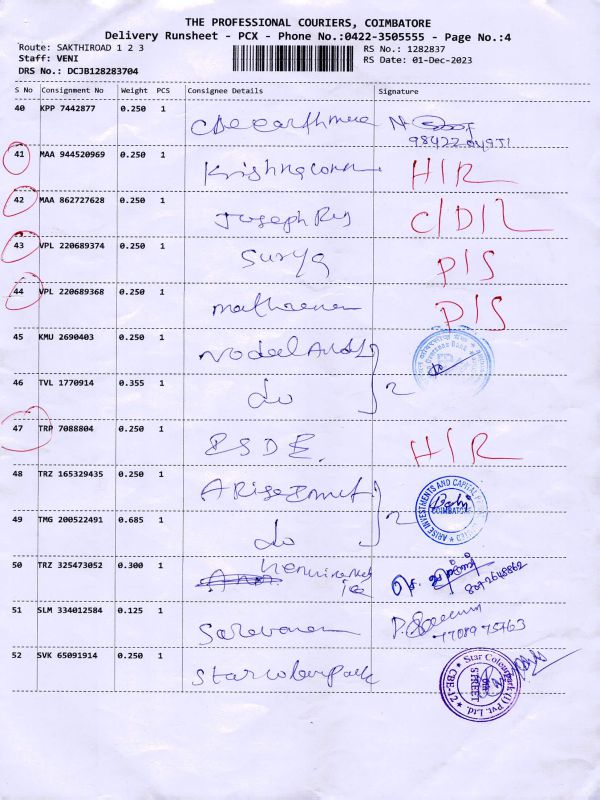 THE PROFESSIONAL COURIERS, COIMBATORE
Delivery Runsheet - PCX - Phone No.:0422-3505555 - Page No.:4
Route: SAKTHIROAD 1 2 3 RS No.: 1282837
Staff: VENI RS Date: 01-Dec-2023
DRS No.: DCJB128283704
S No Consignment No Weight PCS Consignee Details Signature
40 KPP 7442877 0.250 1
41 MAA 944520969 0.250 1 H/R
42 MAA 862727628 0.250 1 Joseph C/D/R
43 VPL 220689374 0.250 1 Surya D/S
44 VPL 220689368 0.250 1 D/S
45 KMU 2690403 0.250 1
46 TVL 1770914 0.355 1 do 2
47 TRP 7088804 0.250 1 H/R
48 TRZ 165329435 0.250 1 ARISE INVESTMENTS AND CAPITAL
COIMBATORE
49 TMG 200522491 0.685 1 do 2
50 TRZ 325473052 0.300 1
51 SLM 334012584 0.125 1 Saravanan
52 SVK 65091914 0.250 1 Star Colourpark
Star Colourpark (I) Pvt. Ltd.
STREET
CBE-12